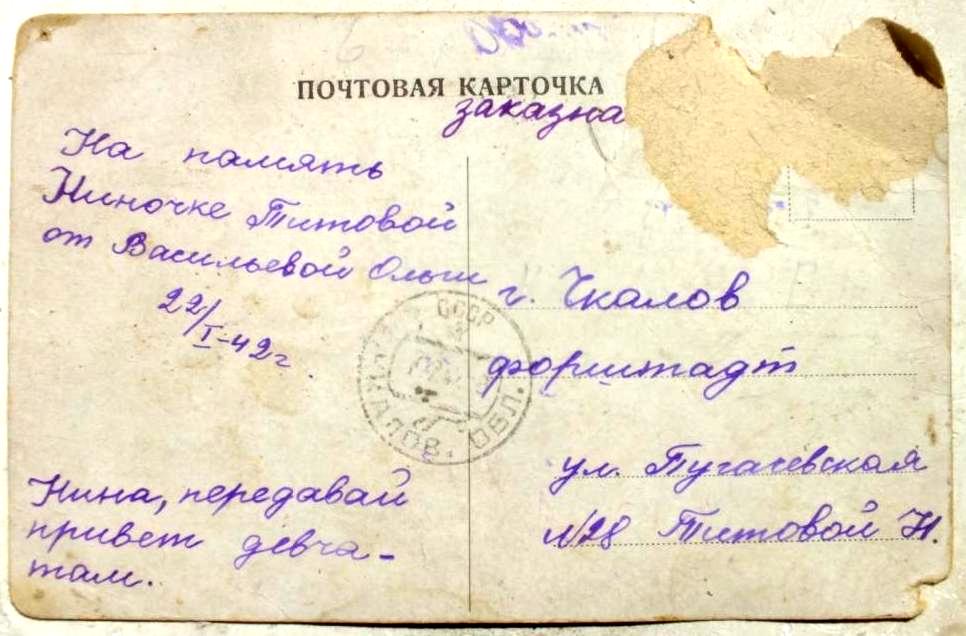 ПОЧТОВАЯ КАРТОЧКА
заказна
На память
Ниночке Титовой
от Васильевой Ольги
22/I-42 г.
Нина, передавай
привет девча-
там.
г. Чкалов
форштадт
ул. Пугачевская
№28 Титовой Н.
СССР
ЧКАЛОВ. ОБЛ.